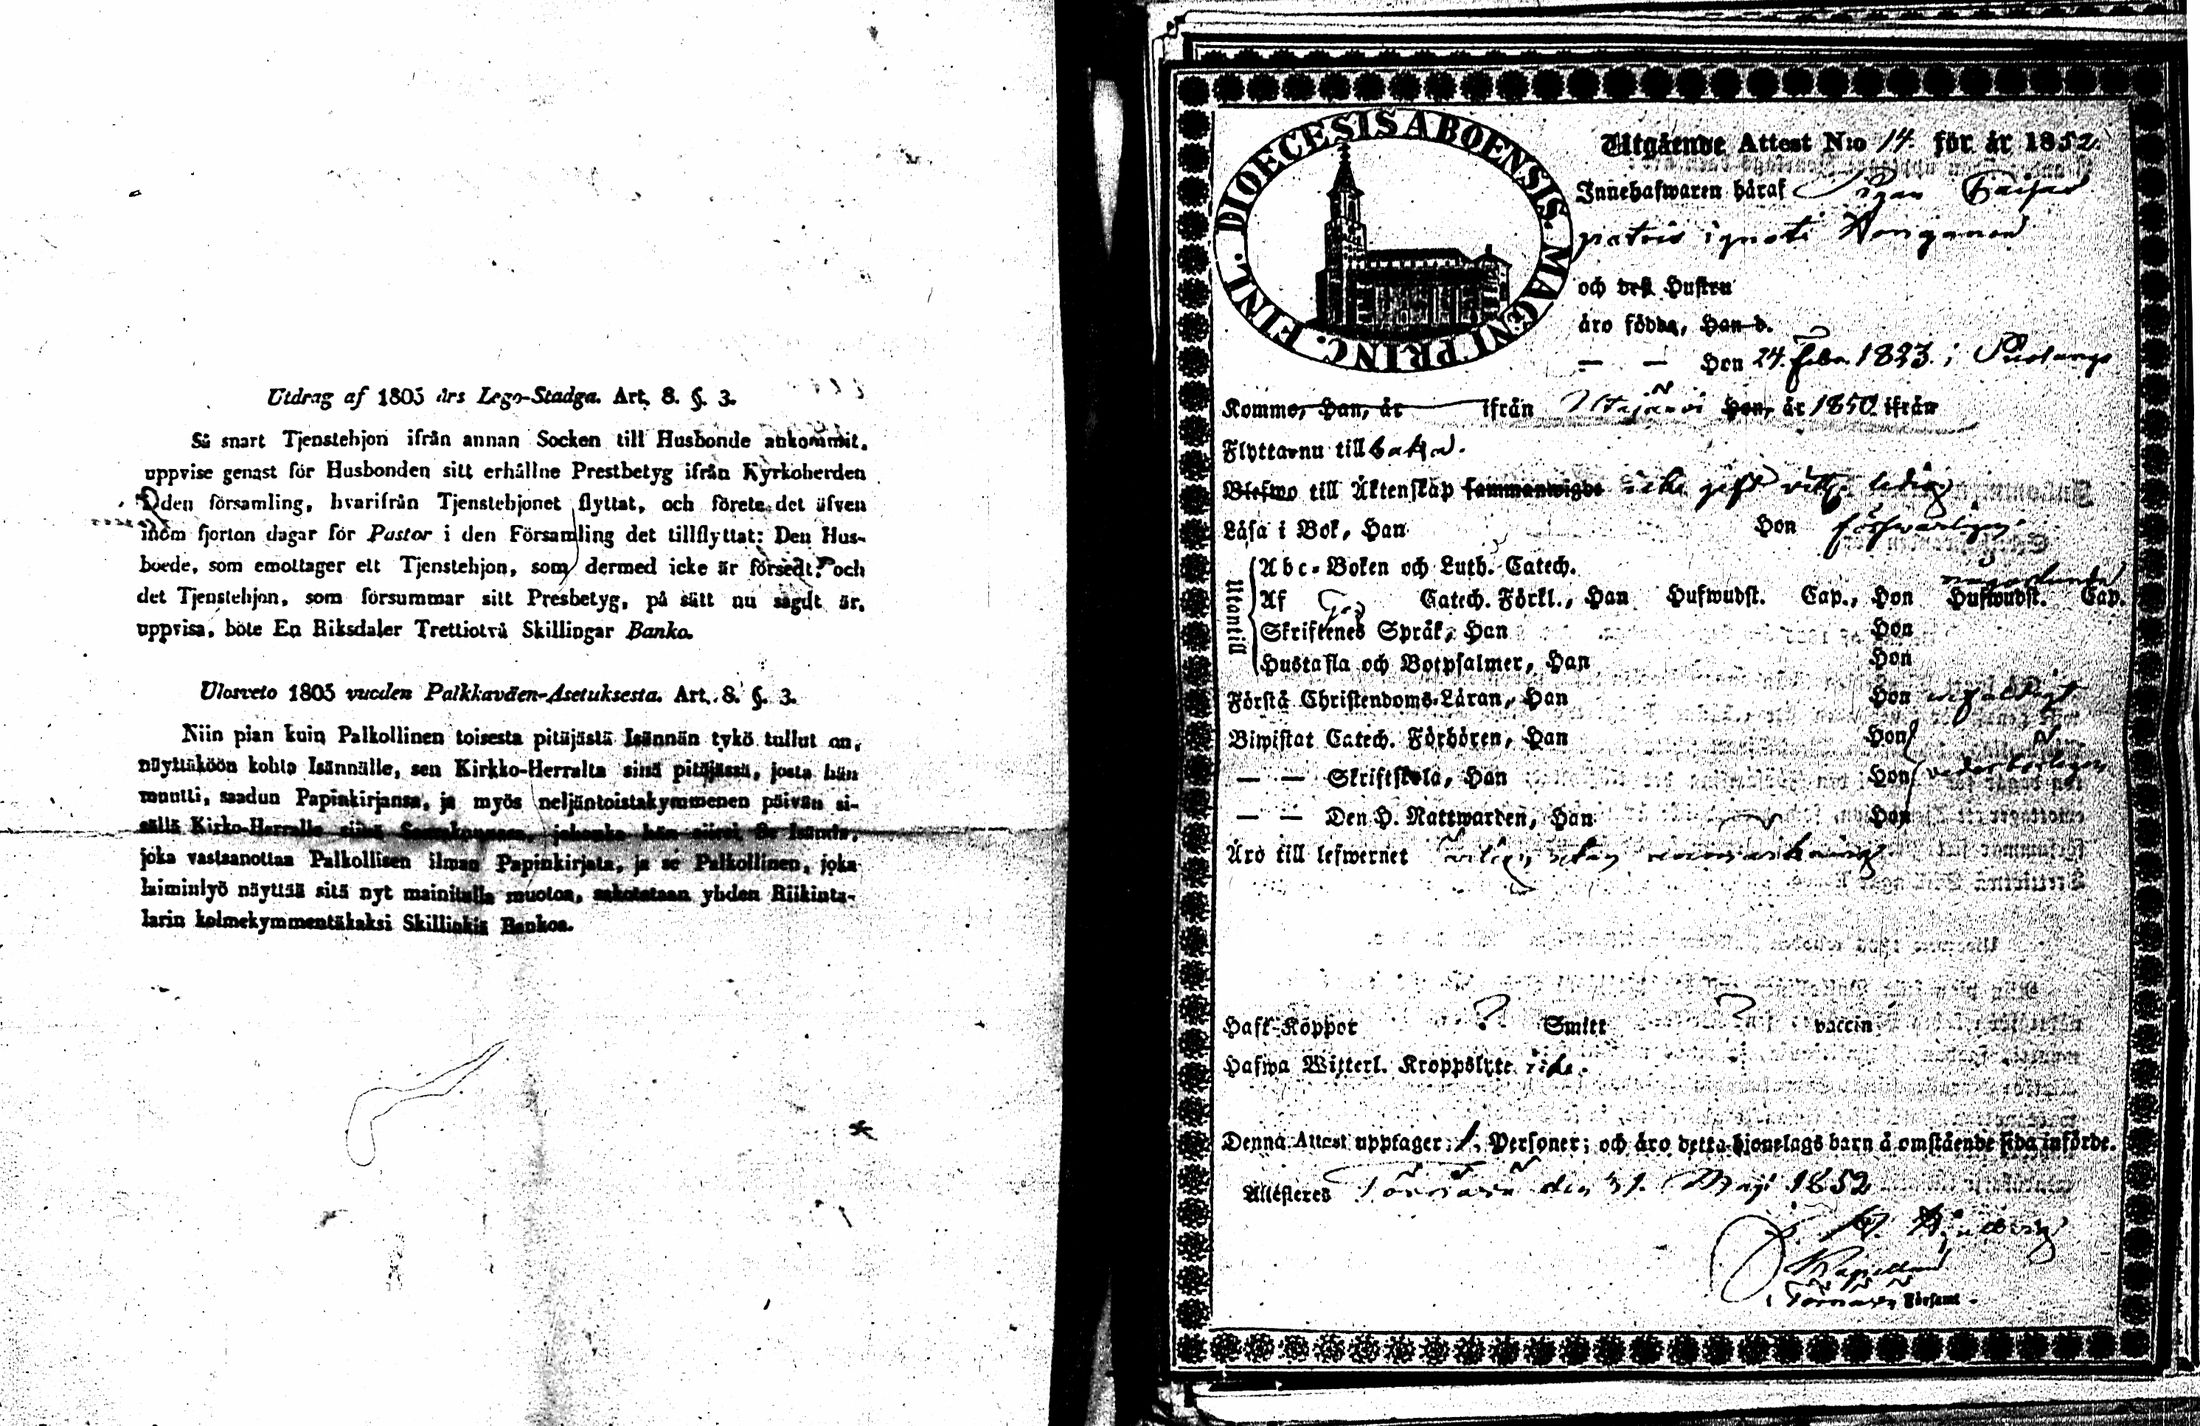 Utdrag af 1805 års Lego-Stadga. Art. 8. §. 3.
Så snart Tjenstehjon ifrån annan Socken till Husbonde ankommit,
uppvise genast för Husbonden sitt erhållne Prestbetyg ifrån Kyrkoherden
den församling, hvarifrån Tjenstehjonet flyttat, och förete det äfven
inom fjorton dagar för Pastor i den Församling det tillflyttat: Den Hus-
boede, som emottager ett Tjenstehjon, som dermed icke är försedt, och
det Tjenstehjon, som försummar sitt Presbetyg, på sätt nu sagdt är,
uppvisa, böte En Riksdaler Trettiotvå Skillingar Banko.
Ulosveto 1805 vuoden Palkkaväen-Asetuksesta. Art. 8. §. 3.
Niin pian kuin Palkollinen toisesta pitäjästä Isännän tykö tullut on,
näyttäköön kohta Isännälle, sen Kirkko-Herralta siinä pitäjässä, josta hän
muutti, saadun Papinkirjansa, ja myös neljäntoistakymmenen päivän si-
sällä Kirko-Herralle siinä
joka vastaanottaa Palkollisen ilman Papinkirjata, ja se Palkollinen, joka
laiminlyö näyttää sitä nyt mainitulla muotoa, sakotetaan yhden Riikinta-
larin kolmekymmentäkaksi Skillinkiä Bankoa.
DIOECESIS ABOENSIS. MAGNI PRINC. FINL.
Utgående Attest N:o 14. för år 1852.
Innehafwaren häraf Pigan
patris ignoti
och deß Hustru
äro födda, Han d.
— — Hon 24. Febr. 1823. i
Komme, Han, år ifrån Hon, år 1850 ifrån
Flyttarnu till
Blefwo till Äktenskap sammanwigde icke gift
Läsa i Bok, Han Hon försvarligen
Utantill
Abc-Boken och Luth. Catech.
Af Catech. Förkl., Han Hufwudst. Cap., Hon Hufwudst. Cap.
någorlunda
Skriftenes Språk, Han Hon
Hustafla och Botpsalmer, Han Hon
Förstå Christendoms-Läran, Han Hon
Biwistat Catech. Förhören, Han Hon
— — Skriftskola, Han Hon vederbörligen
— — Den H. Nattwarden, Han Hon
Äro till lefwernet
Haft Koppor ? Smitt ? vaccin
Hafwa Witterl. Kroppslyte icke.
Denna Attest upptager 1. Personer; och äro detta hjonelags barn å omstående sida införde.
Attesteres den 31. Maji 1852
Kapellan
i Församl.